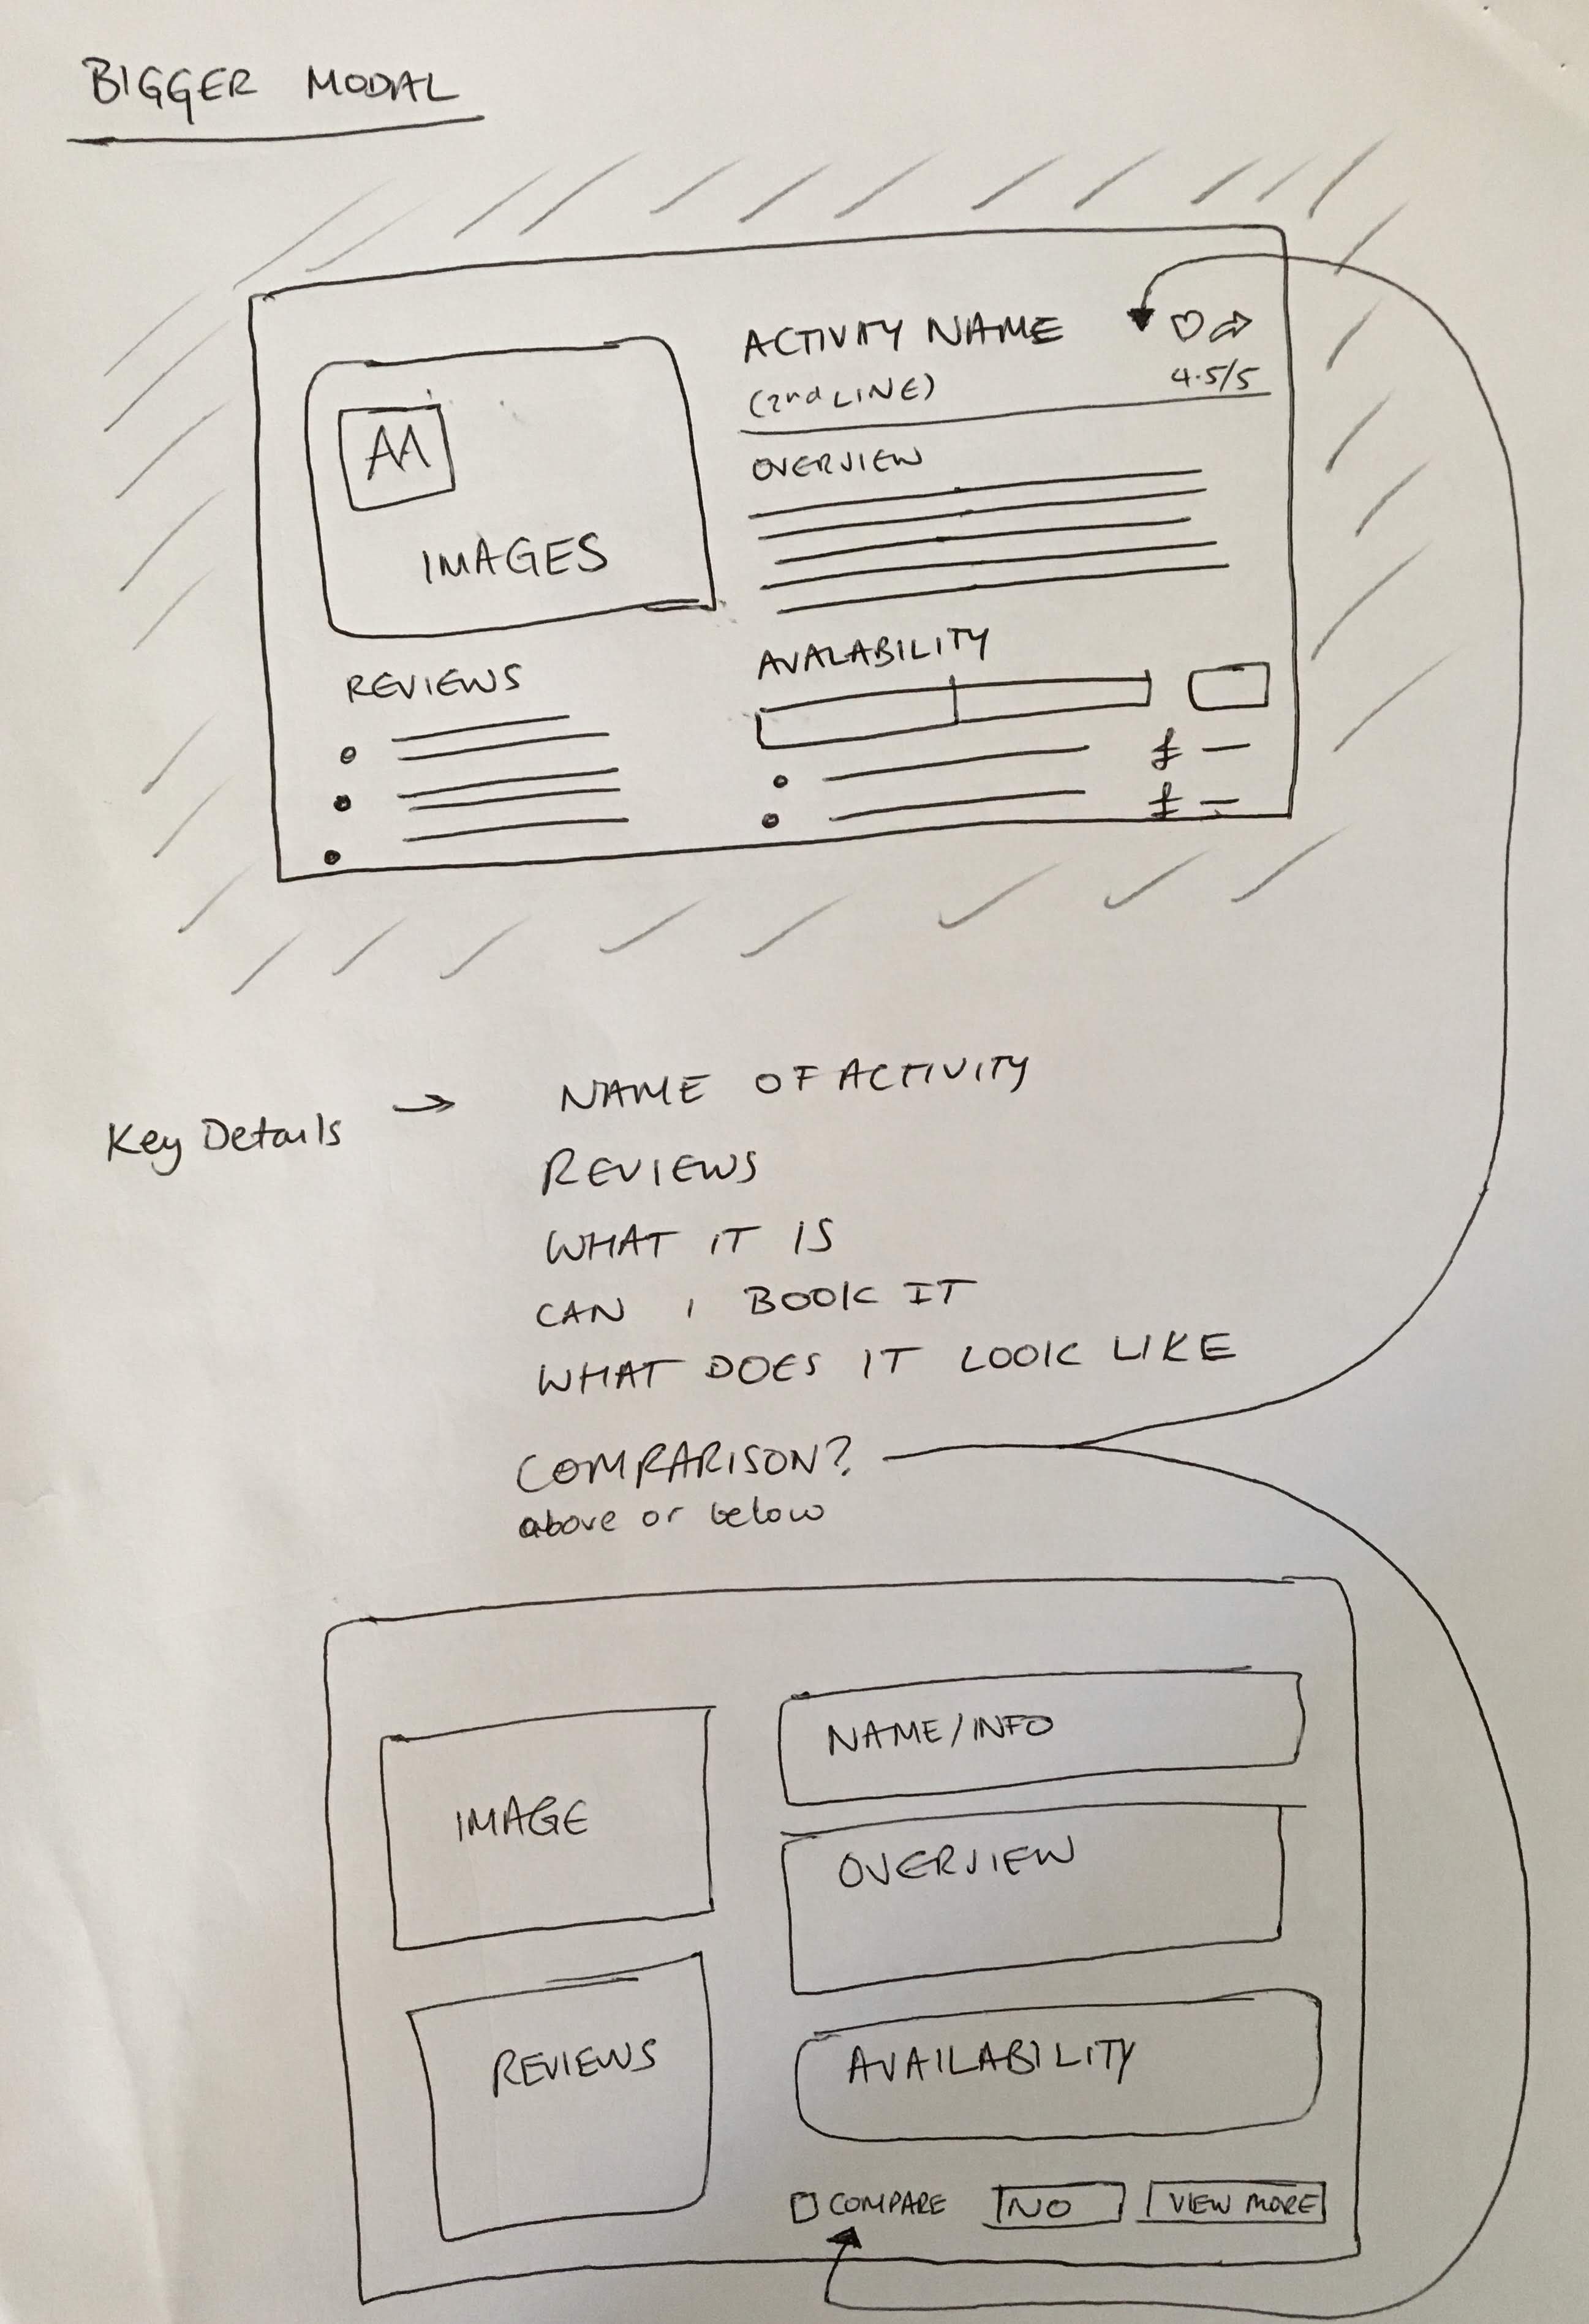 BIGGER MODAL
ACTIVITY NAME
(2nd LINE)
4.5/5
AA
IMAGES
OVERVIEW
REVIEWS
AVALABILITY
£ —
£ —
Key Details → NAME OF ACTIVITY
REVIEWS
WHAT IT IS
CAN I BOOK IT
WHAT DOES IT LOOK LIKE
COMPARISON?
above or below
IMAGE
NAME/INFO
OVERVIEW
REVIEWS
AVAILABILITY
COMPARE
NO
VIEW MORE